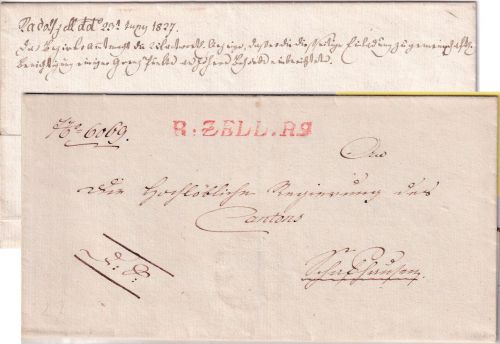 Radolfzell ddo 25t Juny 1827
Das Bezirksamt macht die Anzeige, daß die diesseitige Einladung zu gemeinschaftl.
Berichtigung einiger Grenz Punkte an höhere Behörde
No 6069.
R. ZELL. R3
An
Die Hochlöbliche Regierung des
Cantons
Schafhausen.